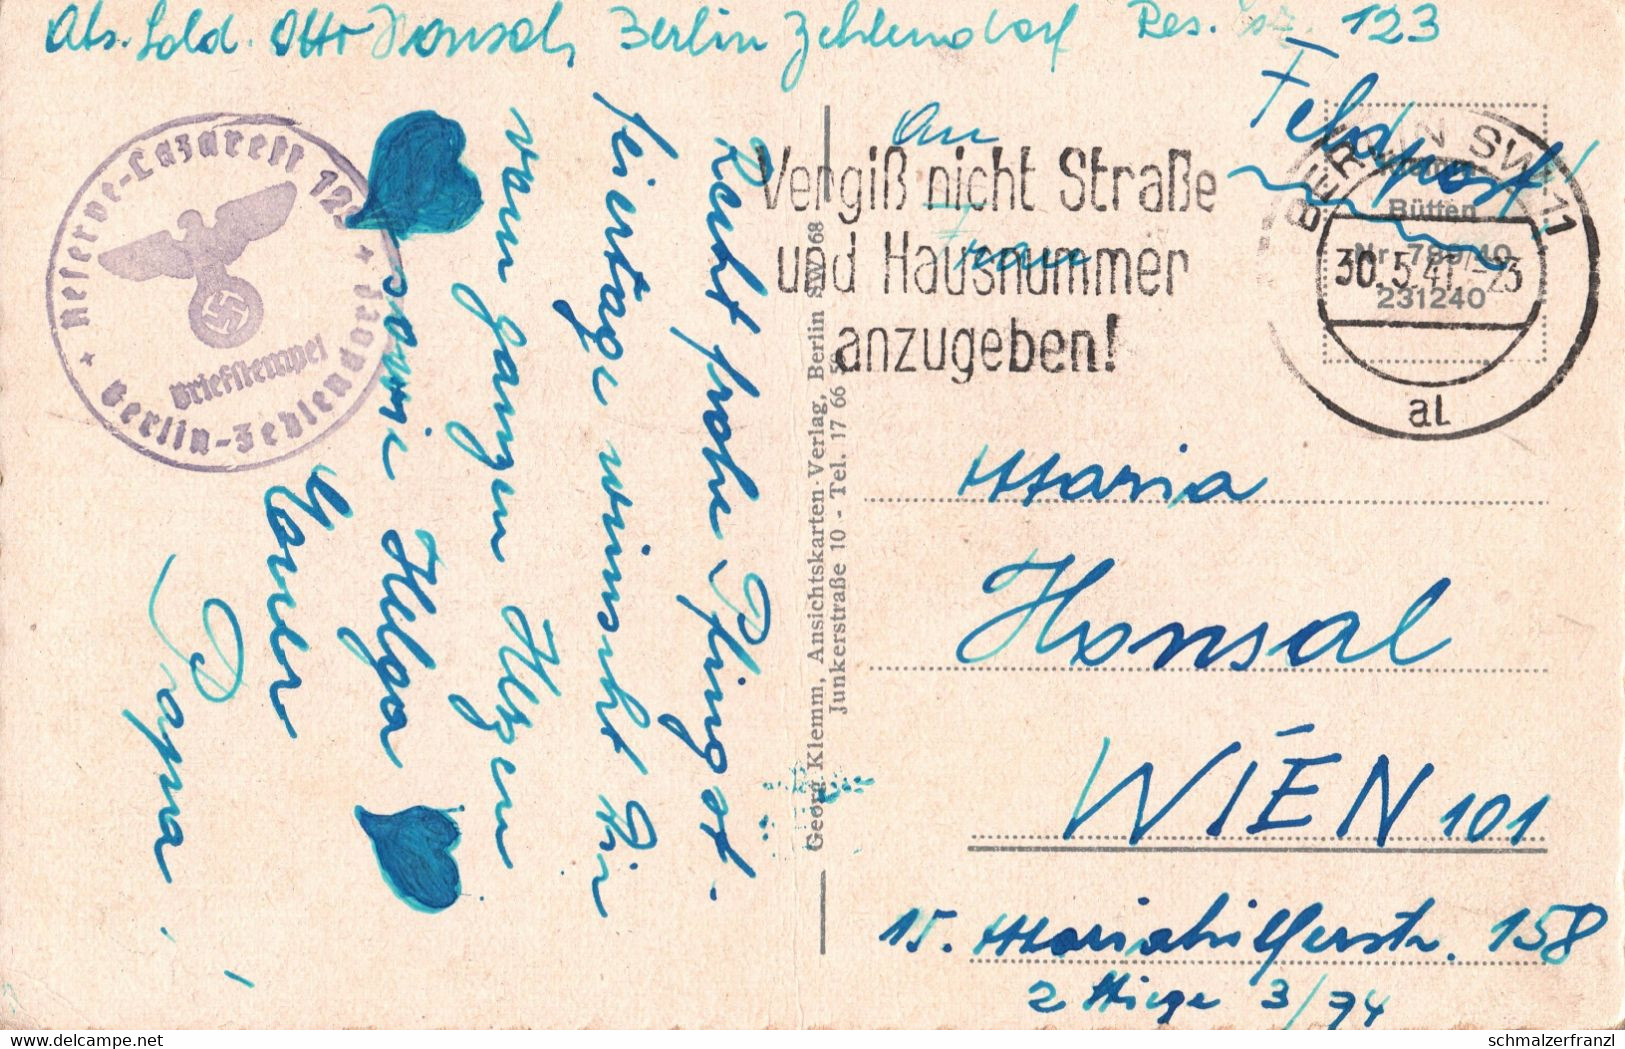 Abs. Sold. Otto Honsal, Berlin Zehlendorf Res. Laz. 123
Feldpost!
Reserve-Lazarett 123
Briefstempel
Berlin-Zehlendorf
Recht frohe Pfingst-
feiertage wünscht Dir
vom ganzen Herzen
sowie Helga
Euer
Papa!
Georg Klemm, Ansichtskarten-Verlag, Berlin SW 68
Junkerstraße 10 - Tel. 17 66 58
Vergiß nicht Straße
und Hausnummer
anzugeben!
BERLIN SW 11
30.5.41.-23
al
Bütten
Nr. 789/40
231240
An
Frau
Maria
Honsal
WIEN 101
15. Mariahilferstr. 158
2 Stiege 3/74
schmalzerfranzl